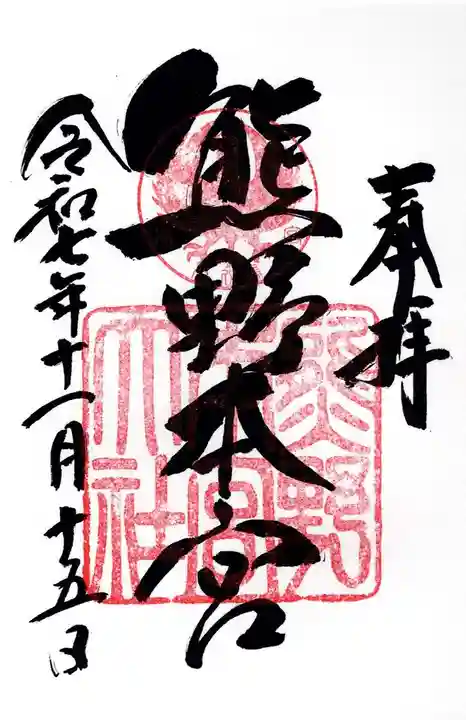 奉拝
熊野本宮
令和七年十一月十五日
熊野本宮大社